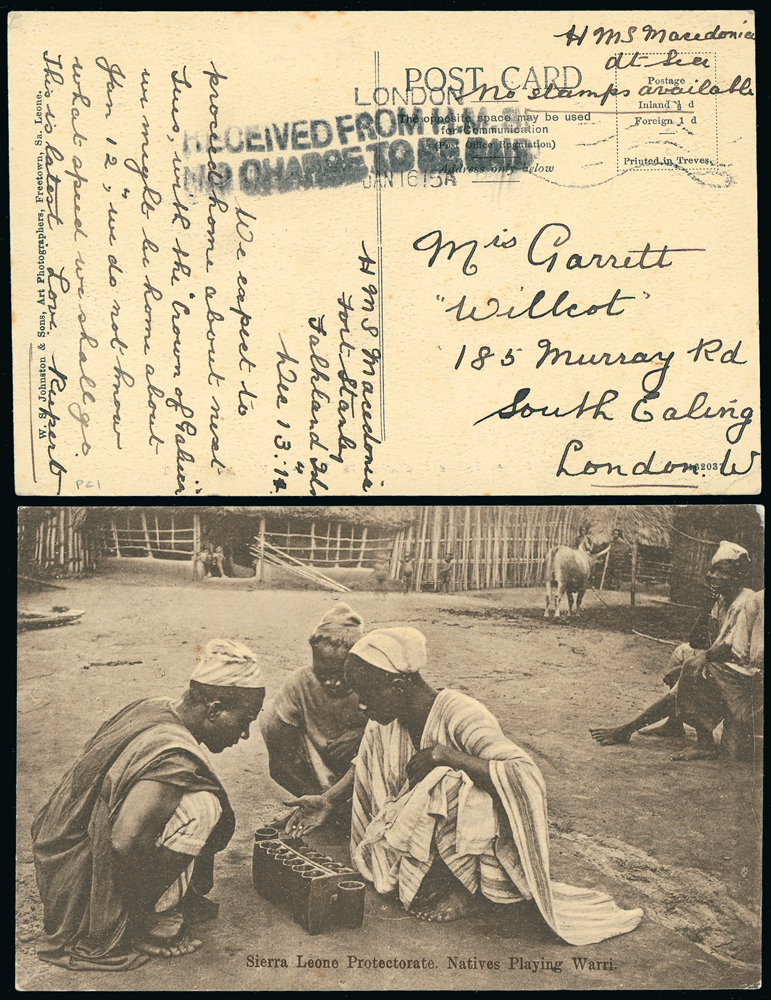 H M S Macedonia
At Sea
No stamps available
POST CARD
The opposite space may be used
for Communication
(Post Office Regulation)
Address only below
Postage
Inland ½ d
Foreign 1 d
Printed in Treves.
LONDON
JAN 16 15
RECEIVED FROM H.M. S
NO CHARGE TO BE
Mis Garrett
"Willcot"
185 Murray Rd
South Ealing
London. W
H M S Macedonia
Port Stanley
Falkland Ids
Dec 13. 14
We expect to
proceed home about next
Tues, with the "Crown of Galicia"
we might be home about
Jan 12", we do not know
what speed we shall go.
This is latest Love. Rupert
W. S. Johnston & Sons, Art Photographers, Freetown, Sa. Leone.
PC1
Sierra Leone Protectorate. Natives Playing Warri.